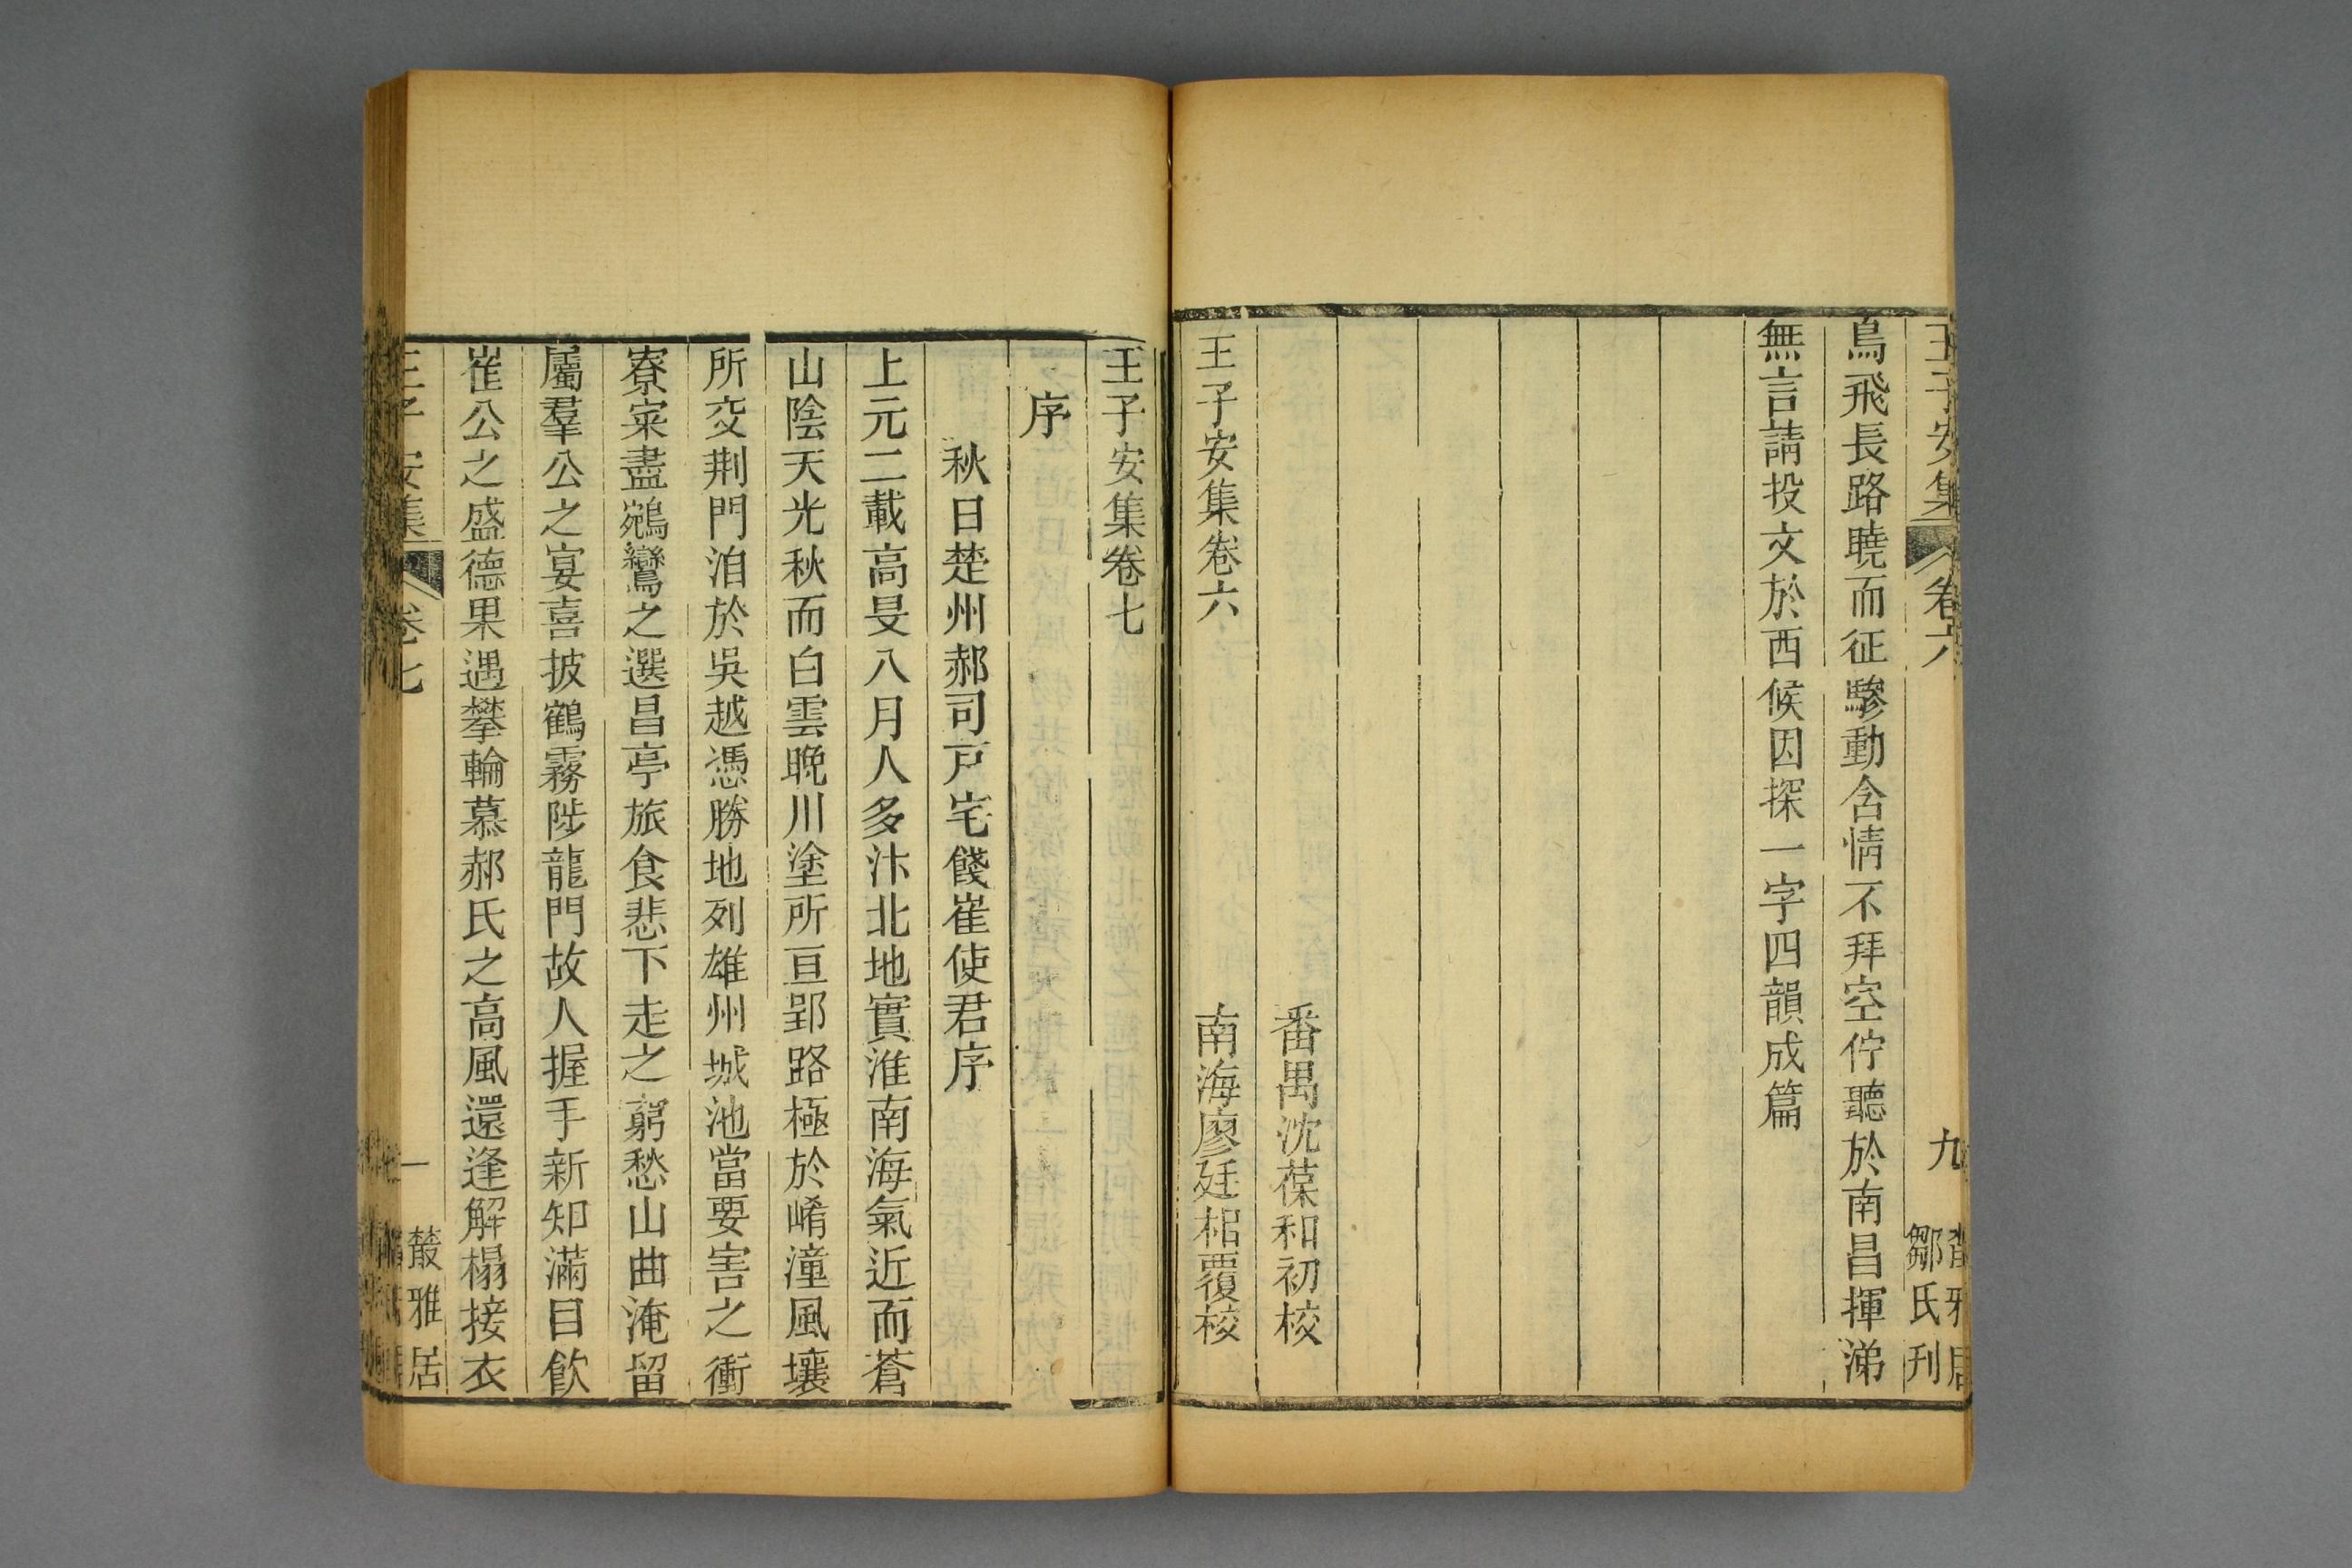 王子安集
卷六
九
鄒氏刊
鳥飛長路曉而征驂動含情不拜空佇聽於南昌揮涕
無言請投文於西候因探一字四韻成篇
番禺沈葆和初校
王子安集卷六
南海廖廷相覆校
王子安集卷七
序
秋日楚州郝司戸宅餞崔使君序
上元二載高旻八月人多汴北地實淮南海氣近而蒼
山陰天光秋而白雲晚川塗所亘郢路極於崤潼風壤
所交荆門洎於吳越憑勝地列雄州城池當要害之衝
寮寀盡鵷鸞之選昌亭旅食悲下走之窮愁山曲淹留
屬羣公之宴喜披鶴霧陟龍門故人握手新知滿目飲
崔公之盛德果遇攀輪慕郝氏之高風還逢解榻接衣
王子安集
卷七
一
叢雅居